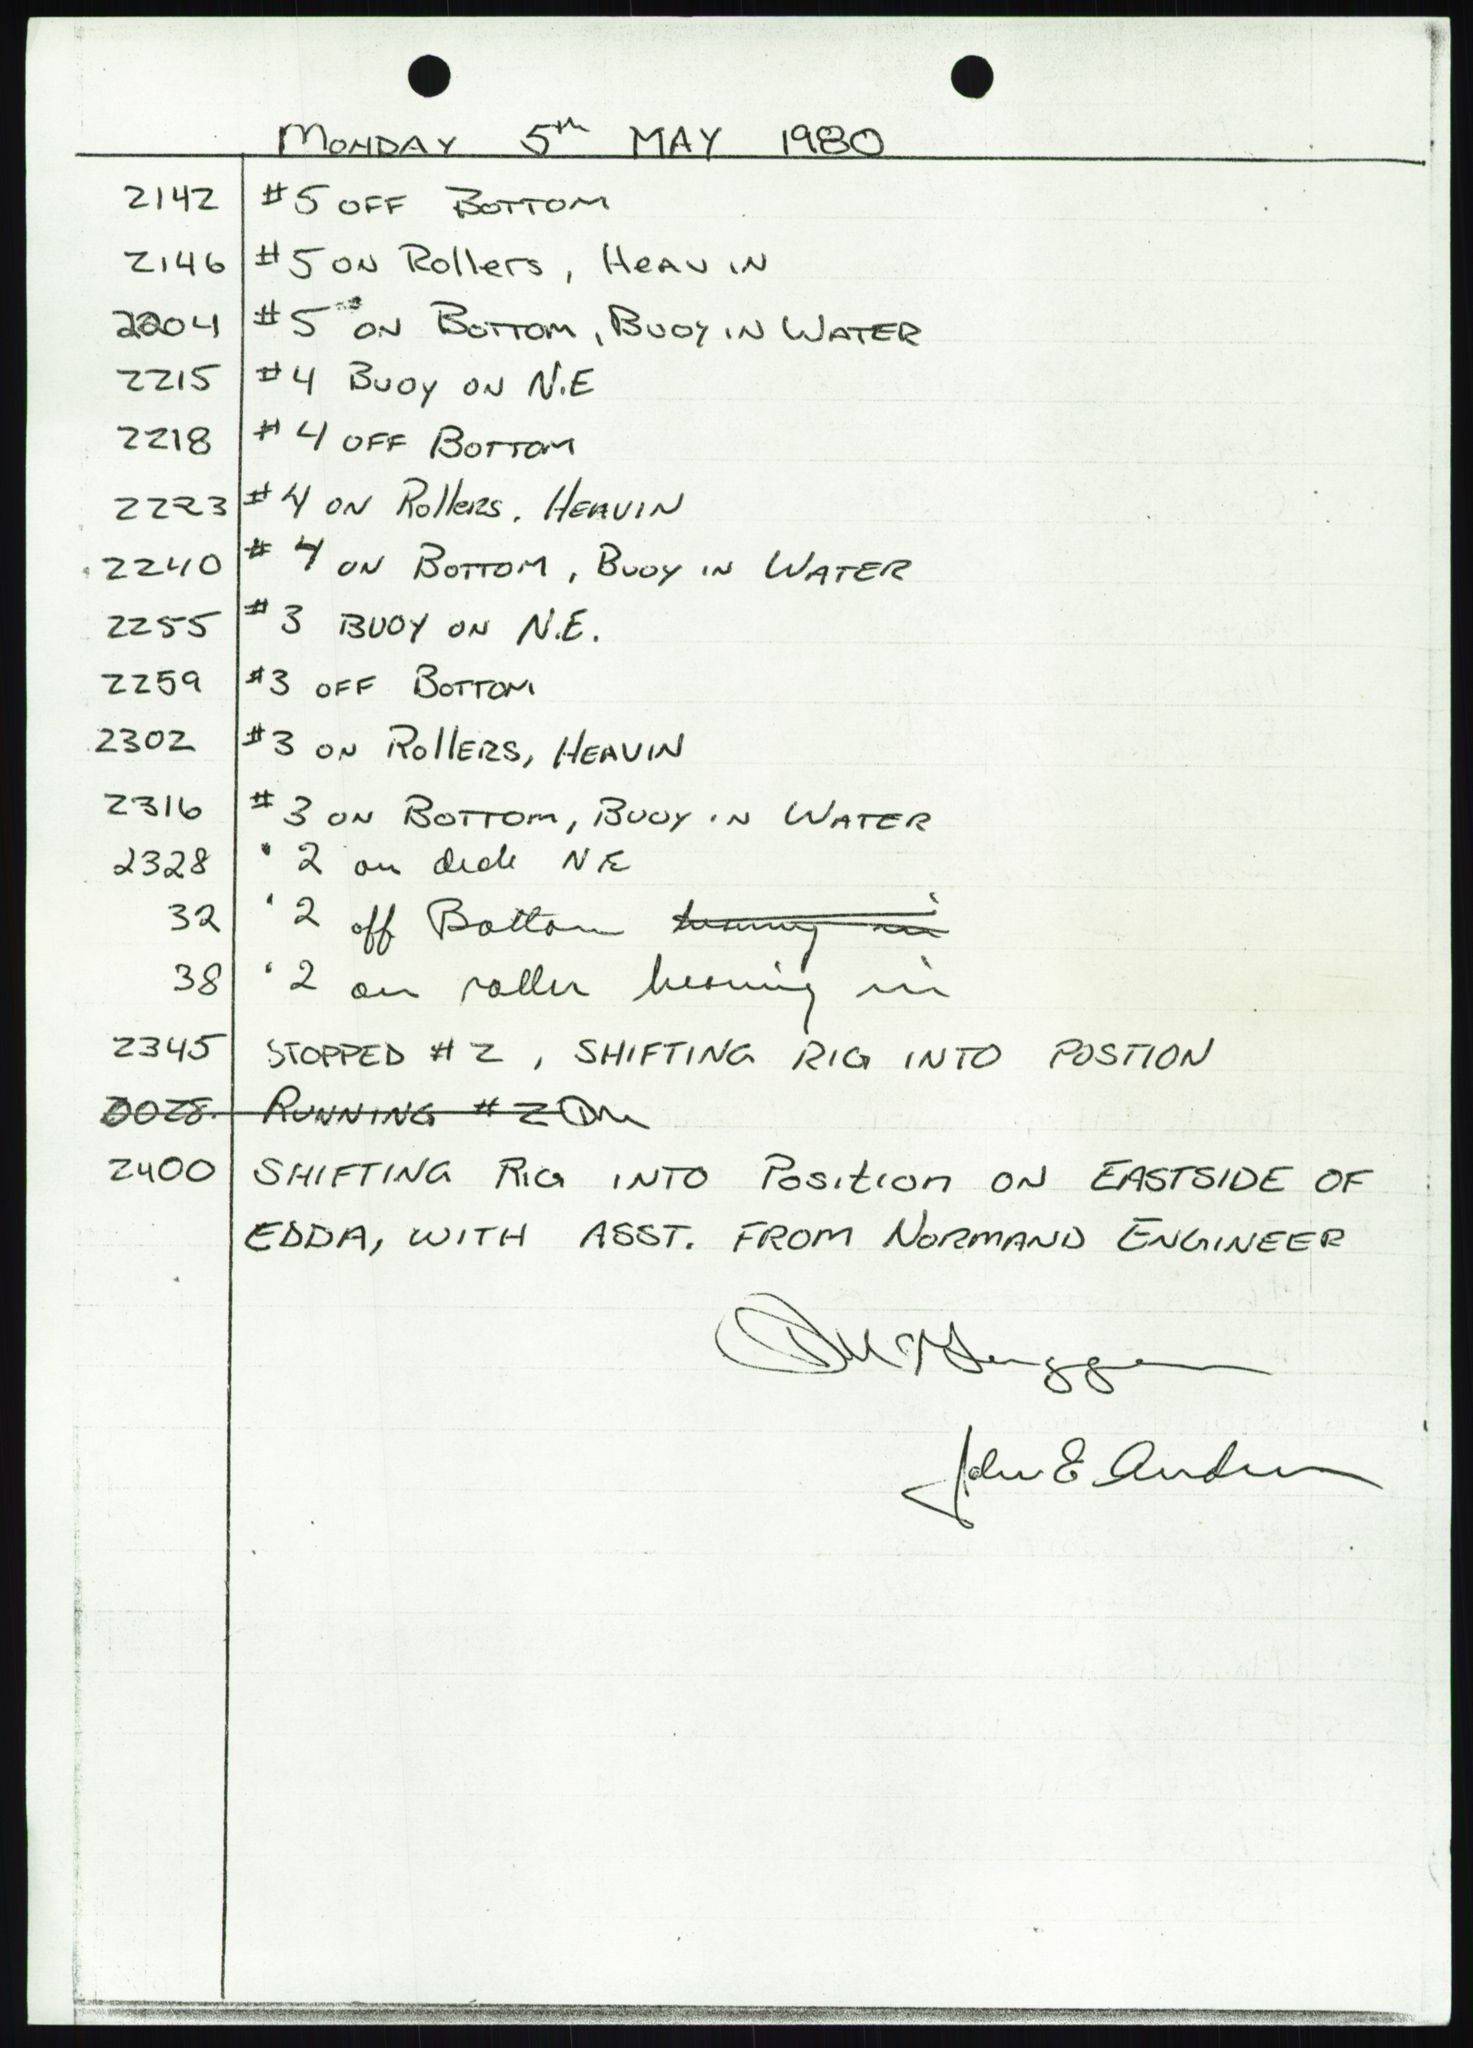 MONDAY 5th MAY 1980
2142 #5 OFF BOTTOM
2146 #5 ON Rollers, HEAV IN
2204 #5 ON BOTTOM, BUOY IN WATER
2215 #4 BUOY ON N.E
2218 #4 OFF BOTTOM
2223 #4 ON Rollers. HEAVIN
2240 #4 ON BOTTOM, BUOY IN WATER
2255 #3 BUOY ON N.E.
2259 #3 OFF BOTTOM
2302 #3 ON ROllERS, HEAVIN
2316 #3 ON BOTTOM, BUOY IN WATER
2328 " 2 on deck NE
32 " 2 off Bottom heaving in
38 " 2 on roller heaving in
2345 STOPPED #2, SHIFTING RIG INTO POSTION
0028 RUNNING #2
2400 SHIFTING RIG INTO Position ON EASTSIDE OF
EDDA, WITH ASST. FROM NORMAND ENGINEER
John E